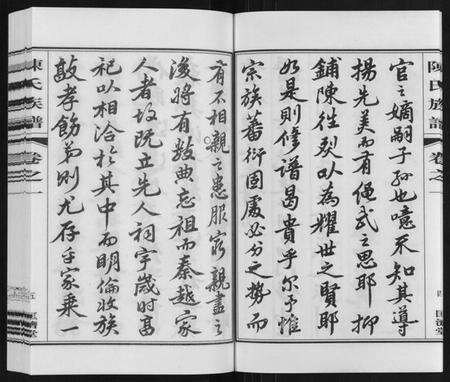 陳氏族譜
卷之一
官之嫡嗣子孫也噫未知其導
揚先美而有繩武之思耶抑
鋪陳往烈以為耀世之賢耶
如是則修譜曷貴乎尔予惟
宗族蕃衍固處必分之勢而
有不相親之患服窮親盡之
後將有數典忘祖而秦越家
人者故既立先人祠宇歲時富
祀以相洽於其中而明倫收族
敦孝飭弟則尤存乎家乘一
陳氏族譜
卷之一